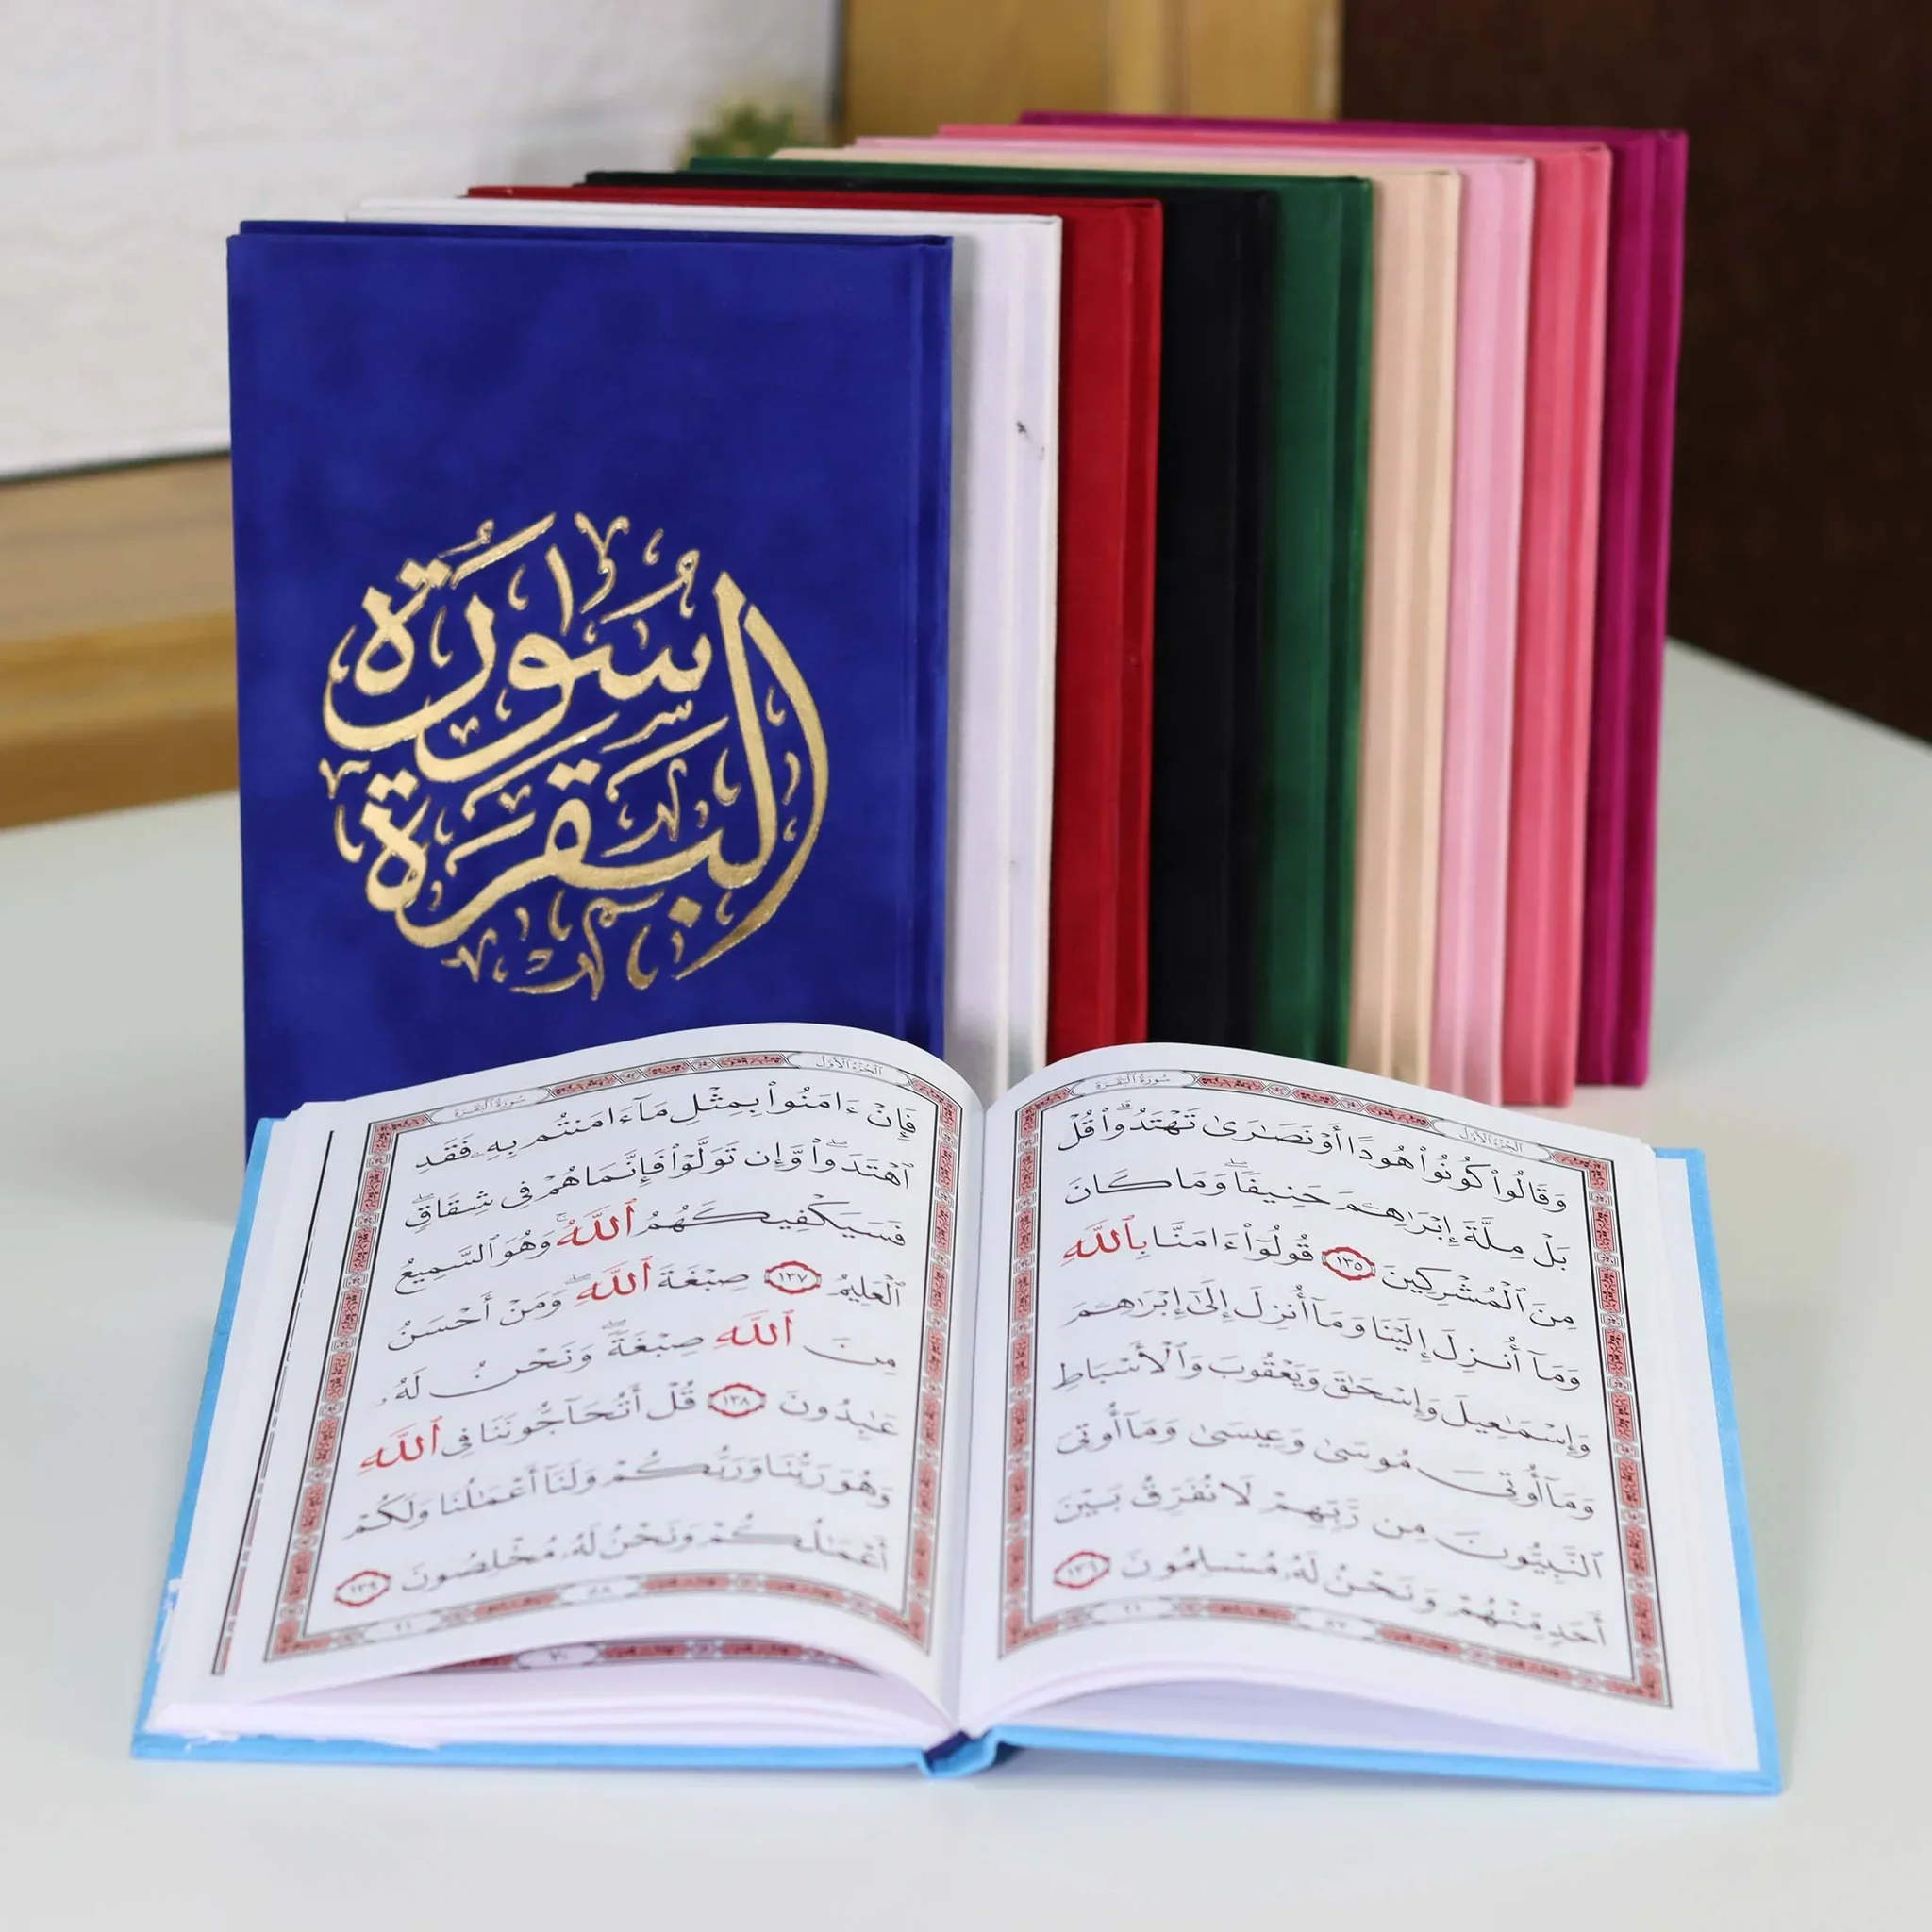 سُورَة
البَقَرَة
سُورَةُ البَقَرَة
الجُزْءُ الأَوَّل
وَقَالُوا۟ كُونُوا۟ هُودًا أَوْ نَصَـٰرَىٰ تَهْتَدُوا۟ ۗ قُلْ
بَلْ مِلَّةَ إِبْرَٰهِـۧمَ حَنِيفًا ۖ وَمَا كَانَ
مِنَ ٱلْمُشْرِكِينَ ١٣٥ قُولُوٓا۟ ءَامَنَّا بِٱللَّهِ
وَمَآ أُنزِلَ إِلَيْنَا وَمَآ أُنزِلَ إِلَىٰٓ إِبْرَٰهِـۧمَ
وَإِسْمَـٰعِيلَ وَإِسْحَـٰقَ وَيَعْقُوبَ وَٱلْأَسْبَاطِ
وَمَآ أُوتِىَ مُوسَىٰ وَعِيسَىٰ وَمَآ أُوتِىَ
ٱلنَّبِيُّونَ مِن رَّبِّهِمْ لَا نُفَرِّقُ بَيْنَ
أَحَدٍ مِّنْهُمْ وَنَحْنُ لَهُۥ مُسْلِمُونَ ١٣٦
الجُزْءُ الأَوَّل
سُورَةُ البَقَرَة
فَإِنْ ءَامَنُوا۟ بِمِثْلِ مَآ ءَامَنتُم بِهِۦ فَقَدِ
ٱهْتَدَوا۟ ۖ وَّإِن تَوَلَّوْا۟ فَإِنَّمَا هُمْ فِى شِقَاقٍ ۖ
فَسَيَكْفِيكَهُمُ ٱللَّهُ ۚ وَهُوَ ٱلسَّمِيعُ
ٱلْعَلِيمُ ١٣٧ صِبْغَةَ ٱللَّهِ ۖ وَمَنْ أَحْسَنُ
مِنَ ٱللَّهِ صِبْغَةً ۖ وَنَحْنُ لَهُۥ
عَـٰبِدُونَ ١٣٨ قُلْ أَتُحَآجُّونَنَا فِى ٱللَّهِ
وَهُوَ رَبُّنَا وَرَبُّكُمْ وَلَنَآ أَعْمَـٰلُنَا وَلَكُمْ
أَعْمَـٰلُكُمْ وَنَحْنُ لَهُۥ مُخْلِصُونَ ١٣٩